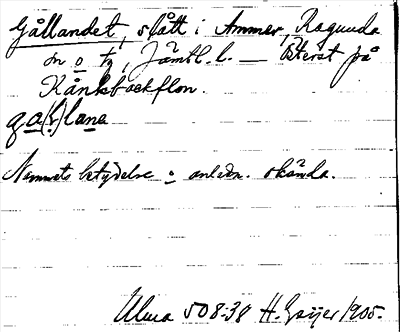 Gållandet, slått i Ammer, Ragunda
sn o tg, Jämtl. l. — Överst på
Kånkbackflon.
Namnets betydelse o anledn. okända.
Ulma 508:38 H. Geijer 1905.